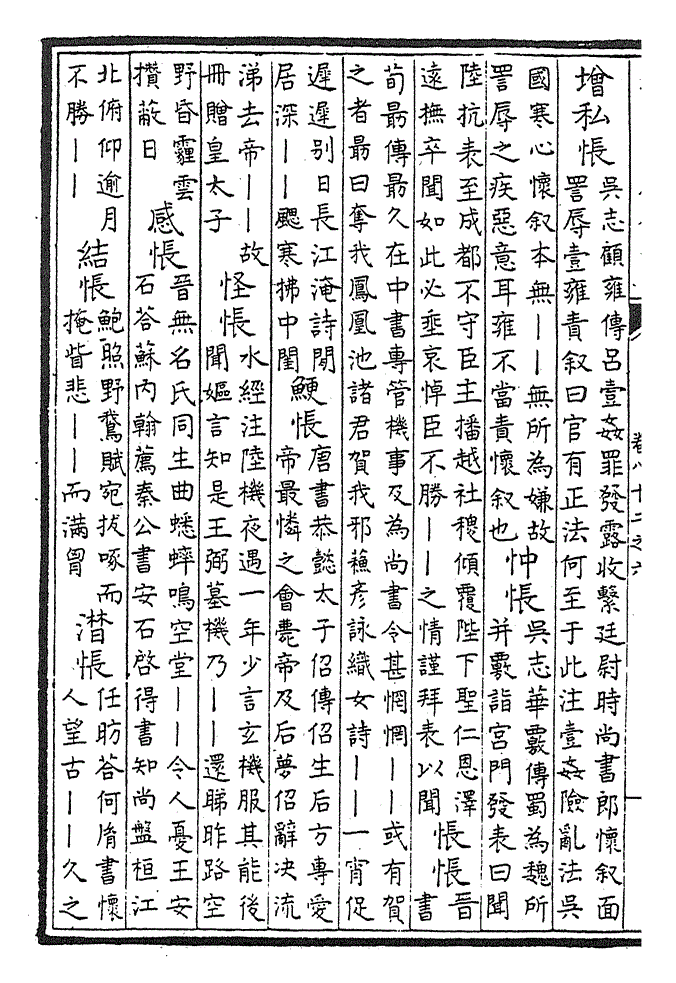 增私悵
吳志顧雍傳呂壹姦罪發露收繫廷尉時尚書郎懷叙面
詈辱壹雍責叙曰官有正法何至于此注壹姦險亂法吳
國寒心懷叙本無——無所為嫌故
詈辱之疾惡意耳雍不當責懷叙也
忡悵
吳志華覈傳蜀為魏所
并覈詣宮門發表曰聞
陸抗表至成都不守臣主播越社稷傾覆陛下聖仁恩澤
遠撫卒聞如此必垂哀悼臣不勝——之情謹拜表以聞
悵悵
晉
書
荀最傳最久在中書專管機事及為尚書令甚惘惘——或有賀
之者最曰奪我鳳凰池諸君賀我邪蘓彦詠織女詩——一宵促
遲遲别日長江淹詩閒
居深——颸寒拂中閨
鯁悵
唐書恭懿太子佋傳佋生后方專愛
帝最憐之會薨帝及后夢佋辭决流
涕去帝——故
冊贈皇太子
怪悵
水經注陸機夜遇一年少言玄機服其能後
聞嫗言知是王弼墓機乃——還睇昨路空
野昏霾雲
攢蔽日
感悵
晉無名氏同生曲蟋蟀鳴空堂——令人憂王安
石荅蘇内翰薦秦公書安石啓得書知尚盤桓江
北俯仰逾月
不勝——
結悵
鮑照野鵞賦宛拔啄而
掩眥悲——而滿胷
潜悵
任昉荅何胤書懷
人望古——久之
卷八十二之六